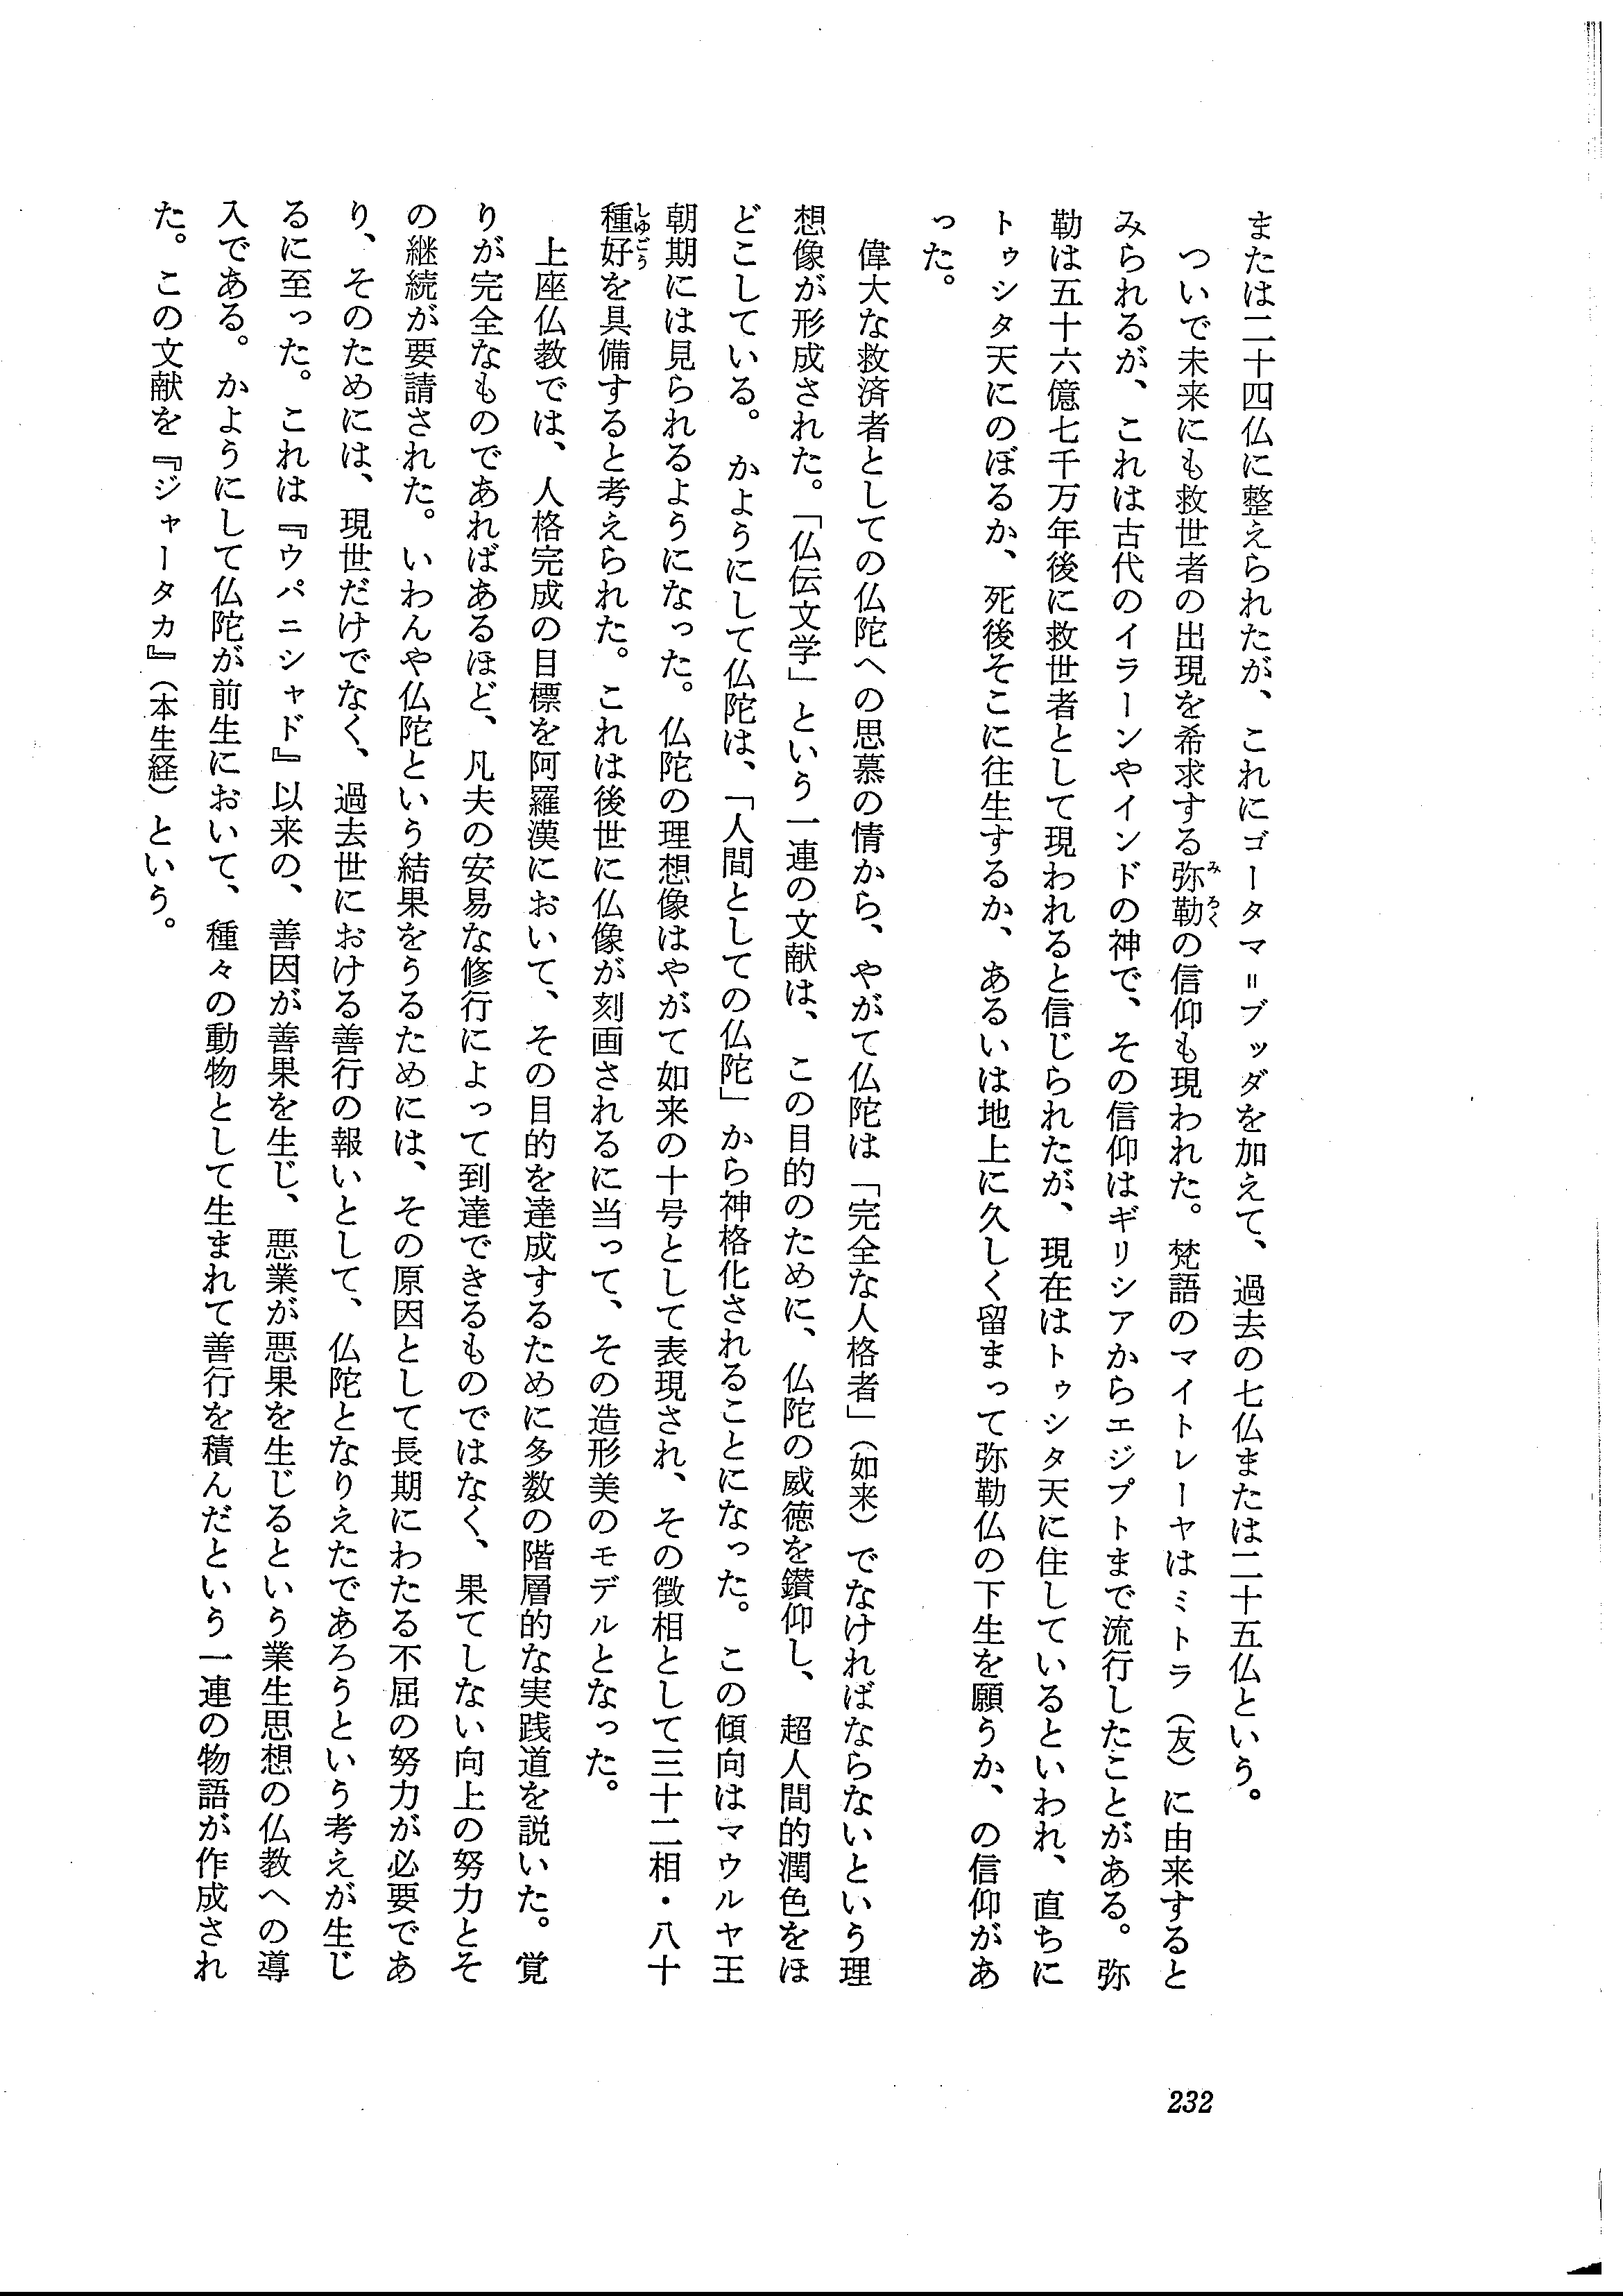 または二十四仏に整えられたが、これにゴータマ＝ブッダを加えて、過去の七仏または二十五仏という。
　ついで未来にも救世者の出現を希求する弥勒の信仰も現われた。梵語のマイトレーヤはミトラ（友）に由来すると
みられるが、これは古代のイラーンやインドの神で、その信仰はギリシアからエジプトまで流行したことがある。弥
勒は五十六億七千万年後に救世者として現われると信じられたが、現在はトゥシタ天に住しているといわれ、直ちに
トゥシタ天にのぼるか、死後そこに往生するか、あるいは地上に久しく留まって弥勒仏の下生を願うか、の信仰があ
った。
　偉大な救済者としての仏陀への思慕の情から、やがて仏陀は「完全な人格者」（如来）でなければならないという理
想像が形成された。「仏伝文学」という一連の文献は、この目的のために、仏陀の威徳を鑽仰し、超人間的潤色をほ
どこしている。かようにして仏陀は、「人間としての仏陀」から神格化されることになった。この傾向はマウルヤ王
朝期には見られるようになった。仏陀の理想像はやがて如来の十号として表現され、その徴相として三十二相・八十
種好を具備すると考えられた。これは後世に仏像が刻画されるに当って、その造形美のモデルとなった。
　上座仏教では、人格完成の目標を阿羅漢において、その目的を達成するために多数の階層的な実践道を説いた。覚
りが完全なものであればあるほど、凡夫の安易な修行によって到達できるものではなく、果てしない向上の努力とそ
の継続が要請された。いわんや仏陀という結果をうるためには、その原因として長期にわたる不屈の努力が必要であ
り、そのためには、現世だけでなく、過去世における善行の報いとして、仏陀となりえたであろうという考えが生じ
るに至った。これは『ウパニシャド』以来の、善因が善果を生じ、悪業が悪果を生じるという業生思想の仏教への導
入である。かようにして仏陀が前生において、種々の動物として生まれて善行を積んだという一連の物語が作成され
た。この文献を『ジャータカ』（本生経）という。
みろく
しゅごう
232